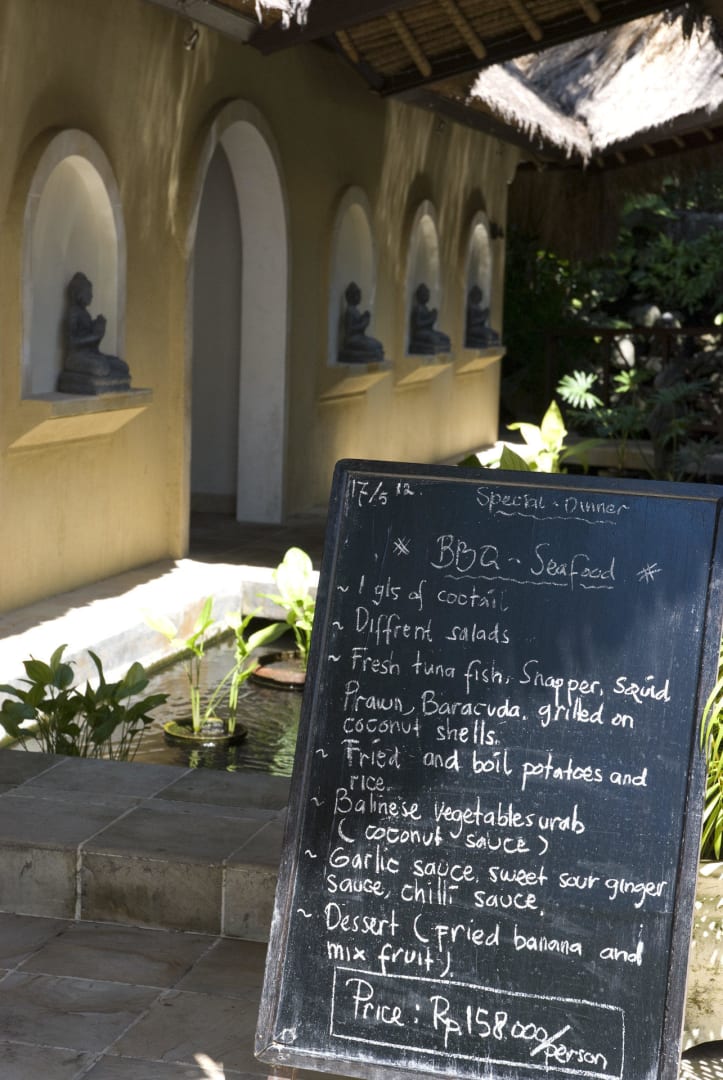 17/5 12.
Special - Dinner
* BBQ - Seafood *
~ 1 gls of coctail
~ Diffrent salads
~ Fresh tuna fish, Snapper, squid
Prawn, Baracuda, grilled on
coconut shells.
~ Fried and boil potatoes and
rice.
~ Balinese vegetables urab
( coconut sauce )
~ Garlic sauce, sweet sour ginger
sauce, chilli sauce.
~ Dessert ( fried banana and
mix fruit ).
Price : Rp 158.000/person